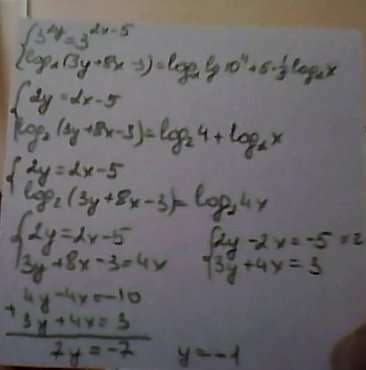 {3^2y = 3^2x-5
{log₂(3y+8x-3) = log₂ lg 10⁴ + 6·⅓ log₂ x
{2y = 2x-5
log₂(3y+8x-3) = log₂4 + log₂x
{2y = 2x-5
log₂(3y+8x-3) = log₂4x
{2y = 2x-5
3y+8x-3 = 4x
{2y-2x = -5
3y+4x = 3
4y-4x = -10
+ 3y+4x = 3
7y = -7 y = -1